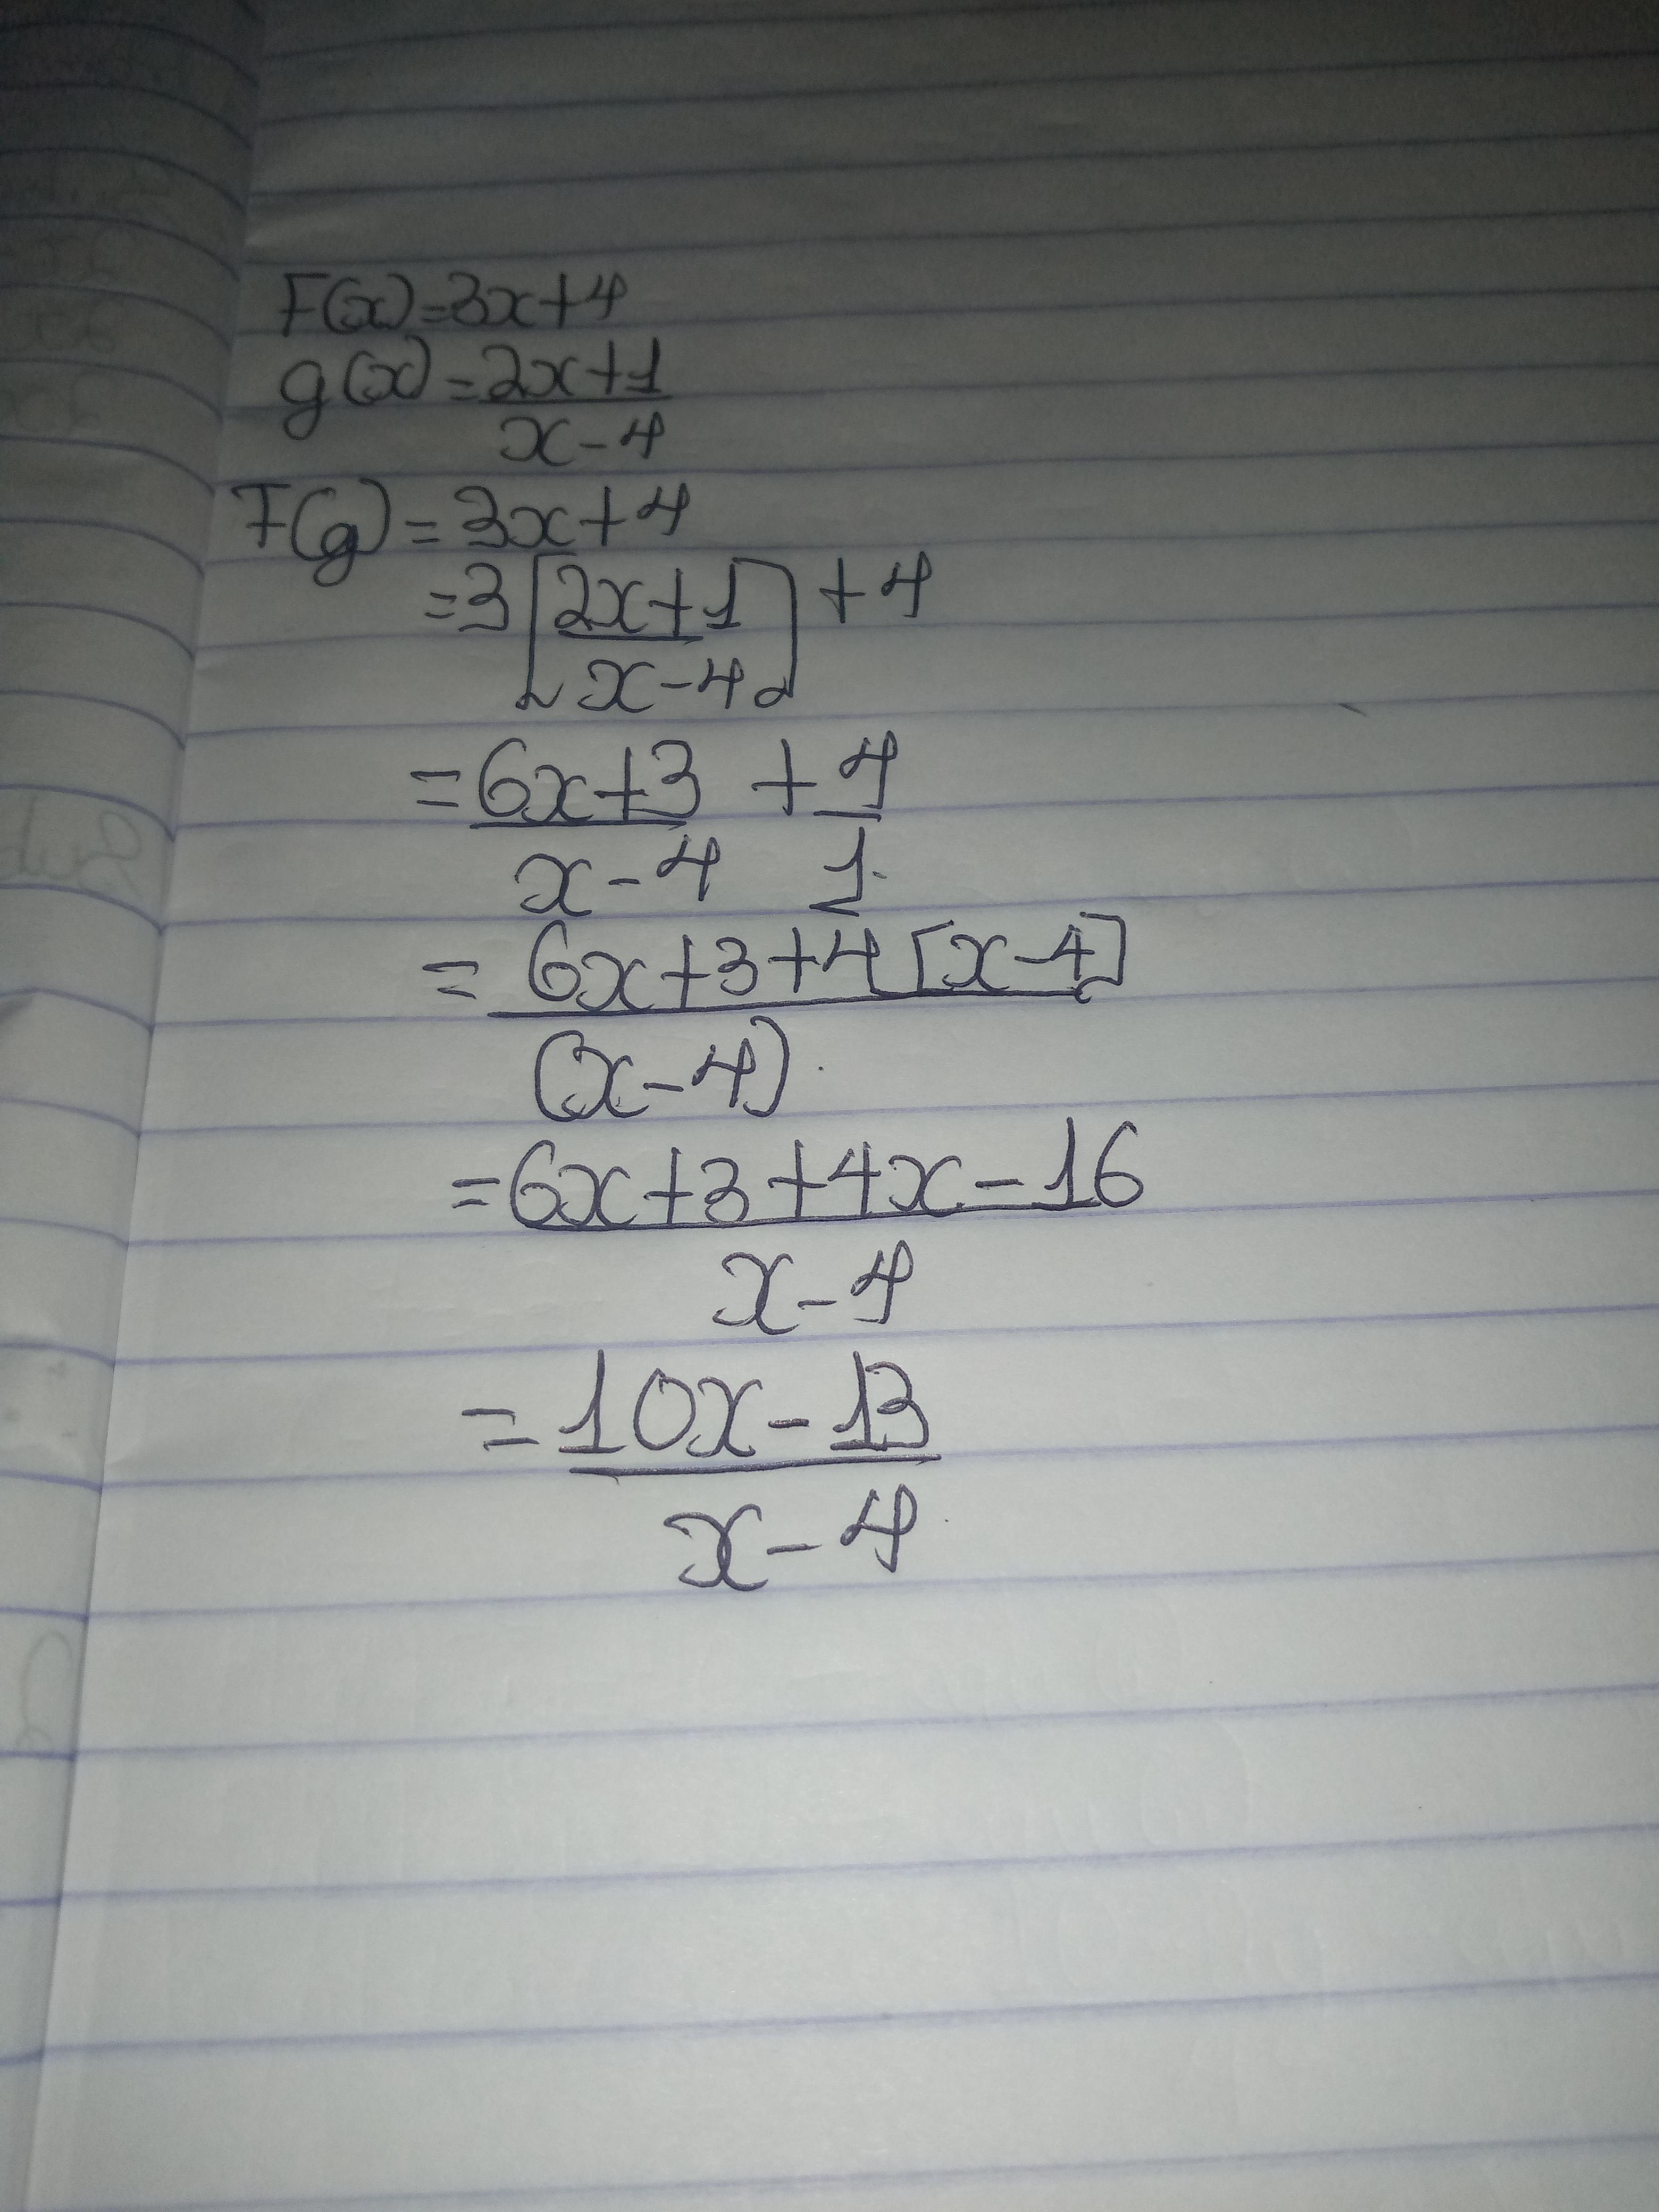 F(x)=3x+4
g(x)=2x+1
x-4
F(g)=3x+4
=3[2x+1]+4
x-4
=6x+3 +4
x-4 1
=6x+3+4[x-4]
(x-4)
=6x+3+4x-16
x-4
=10x-13
x-4